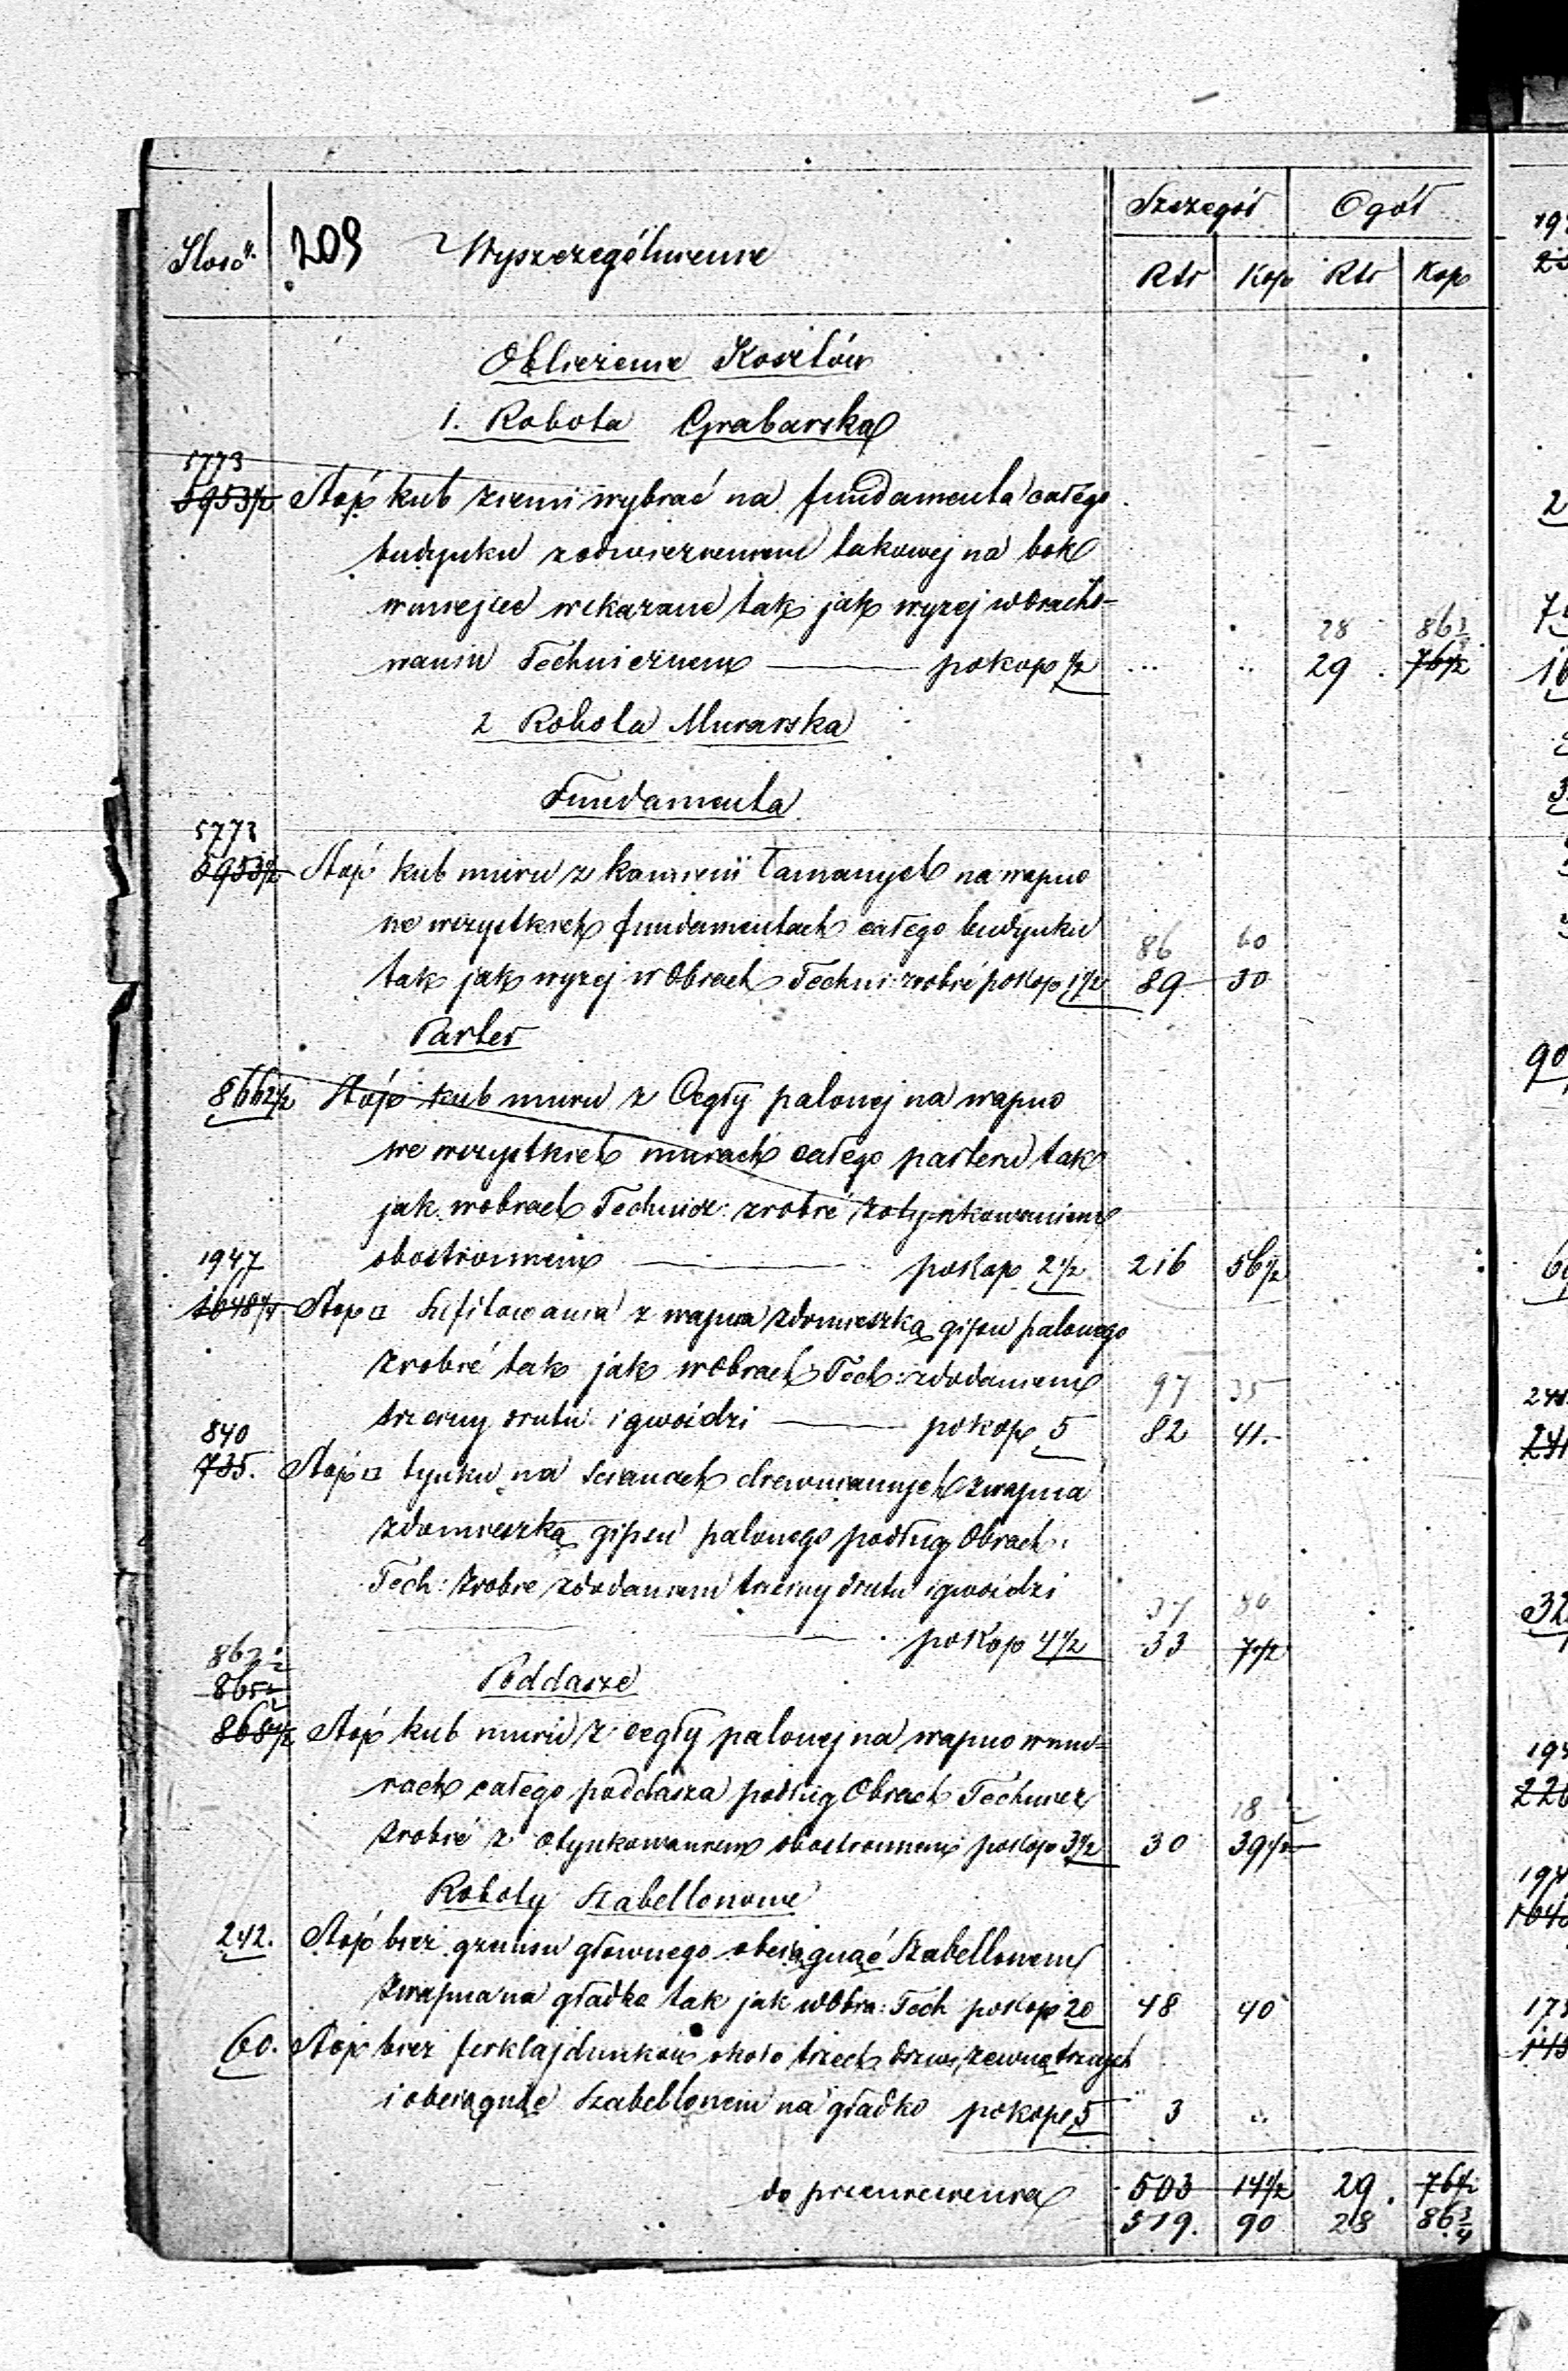 Szczegół Ogół
Ilość 209 Wyszczególnienie
Rsr Kop Rsr Kop
Obliczenie Kosztów
1. Robota Grabarska
5773
5953½ Stóp kub ziemi wybrać na fundamenta całego
budynku z odwiezieniem takowej na bok
w miejsce wskazane tak jak wyżej w Obracho-
28 86¾
waniu Technicznem pokop ½ 29 76½
2 Robota Murarska
Fundamenta
5773
5953½ Stóp kub muru z kamieni łamanych na wapno
we wszystkich fundamentach całego budynku
86 60
tak jak wyżej w Obrach Techni: zrobić pokop 1½ 89 30
Parter
8662½ Stóp kub muru z Cegły palonej na wapno
we wszystkich murach całego parteru tak
jak w obrach Technicz: zrobić z otynkowaniem
obostronnem pokop 2½ 216 56½
1947
1648¼ Stóp □ Sufitowania z wapna z domieszką gipsu palonego
zrobić tak jak w Obrach Tech: z dodaniem
97 35
trzciny drutu i gwoździ pokop 5 82 41.
840
735. Stóp □ tynku na ścianach drewnianych z wapna
z domieszką gipsu palonego podług Obrach:
Tech: zrobić z dodaniem trzciny drutu i gwoździ
37 80
pokop 4½ 33 7½
862½
865½ Poddasze
868½ Stóp kub muru z cegły palonej na wapno w mu-
rach całego poddasza podług Obrach Technicz
18
zrobić z otynkowaniem obostronnem pokop 3½ 30 39½
Roboty Szabellonowe
242. Stóp bież gzemsu głownego obciągnąć Szabellonem
z wapna na gładko tak jak w Obra: Tech pokop 20 48 40
60. Stóp bież ferklajdunków około trzech drzwi zewnętrznych
i obciągnąć Szabellonem na gładko pokop 5 3 "
do przeniesienia 503 14½ 29. 76½
519. 90 28 86¾